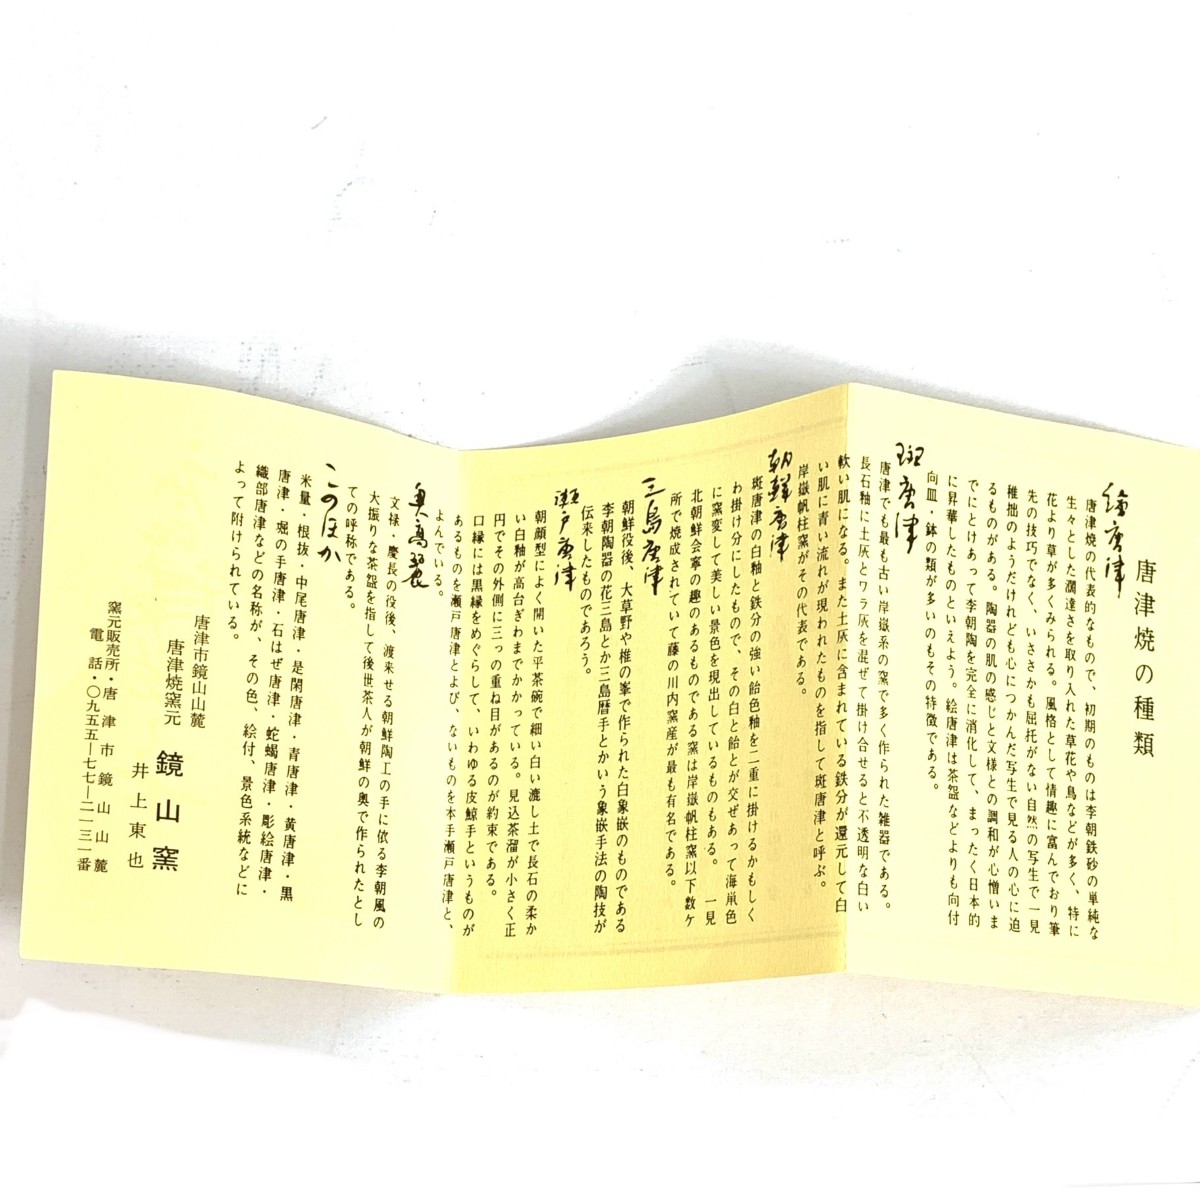 唐津焼の種類
絵唐津
唐津焼の代表的なもので、初期のものは李朝鉄砂の単純な
生々とした濶達さを取り入れた草花や鳥などが多く、特に
花より草が多くみられる。風格として情趣に富んでおり筆
先の技巧でなく、いささかも屈托がない自然の写生で一見
稚拙のようだけれども心につかんだ写生で見る人の心に迫
るものがある。陶器の肌の感じと文様との調和が心憎いま
でにとけあって李朝陶を完全に消化して、まったく日本的
に昇華したものといえよう。絵唐津は茶盌などよりも向付
向皿・鉢の類が多いのもその特徴である。
斑唐津
唐津でも最も古い岸嶽系の窯で多く作られた雑器である。
長石釉に土灰とワラ灰を混ぜて掛け合せると不透明な白い
軟い肌になる。また土灰に含まれている鉄分が還元して白
い肌に青い流れが現われたものを指して斑唐津と呼ぶ。
岸嶽帆柱窯がその代表である。
朝鮮唐津
斑唐津の白釉と鉄分の強い飴色釉を二重に掛けるかもしく
わ掛け分にしたもので、その白と飴とが交ぜあって海鼡色
に窯変して美しい景色を現出しているものもある。一見
北朝鮮会寧の趣のあるものである窯は岸嶽帆柱窯以下数ケ
所で焼成されていて藤の川内窯産が最も有名である。
三島唐津
朝鮮役後、大草野や椎の峯で作られた白象嵌のものである
李朝陶器の花三島とか三島暦手とかいう象嵌手法の陶技が
伝来したものであろう。
瀬戸唐津
朝顔型によく開いた平茶碗で細い白い漉し土で長石の柔か
い白釉が高台ぎわまでかかっている。見込茶溜が小さく正
円でその外側に三つの重ね目があるのが約束である。
口縁には黒縁をめぐらして、いわゆる皮鯨手というものが
あるものを瀬戸唐津とよび、ないものを本手瀬戸唐津と、
よんでいる。
奥高麗
文禄・慶長の役後、渡来せる朝鮮陶工の手に依る李朝風の
大振りな茶盌を指して後世茶人が朝鮮の奥で作られたとし
ての呼称である。
このほか
米量・根抜・中尾唐津・是閑唐津・青唐津・黄唐津・黒
唐津・堀の手唐津・石はぜ唐津・蛇蝎唐津・彫絵唐津・
織部唐津などの名称が、その色、絵付、景色系統などに
よって附けられている。
唐津市鏡山山麓
唐津焼窯元 鏡山窯
井上東也
窯元販売所・唐津市鏡山山麓
電話・〇九五五―七七―二一三一番